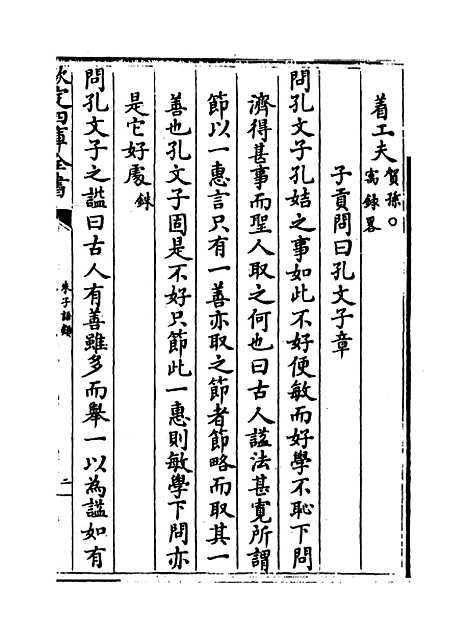 着工夫賀孫○寓錄畧
子貢問曰孔文子章
問孔文子孔姞之事如此不好便敏而好學不恥下問
濟得甚事而聖人取之何也曰古人諡法甚寛所謂
節以一惠言只有一善亦取之節者節略而取其一
善也孔文子固是不好只節此一惠則敏學下問亦
是它好處銖
問孔文子之諡曰古人有善雖多而舉一以為諡如有
欽定四庫全書
朱子語類
二